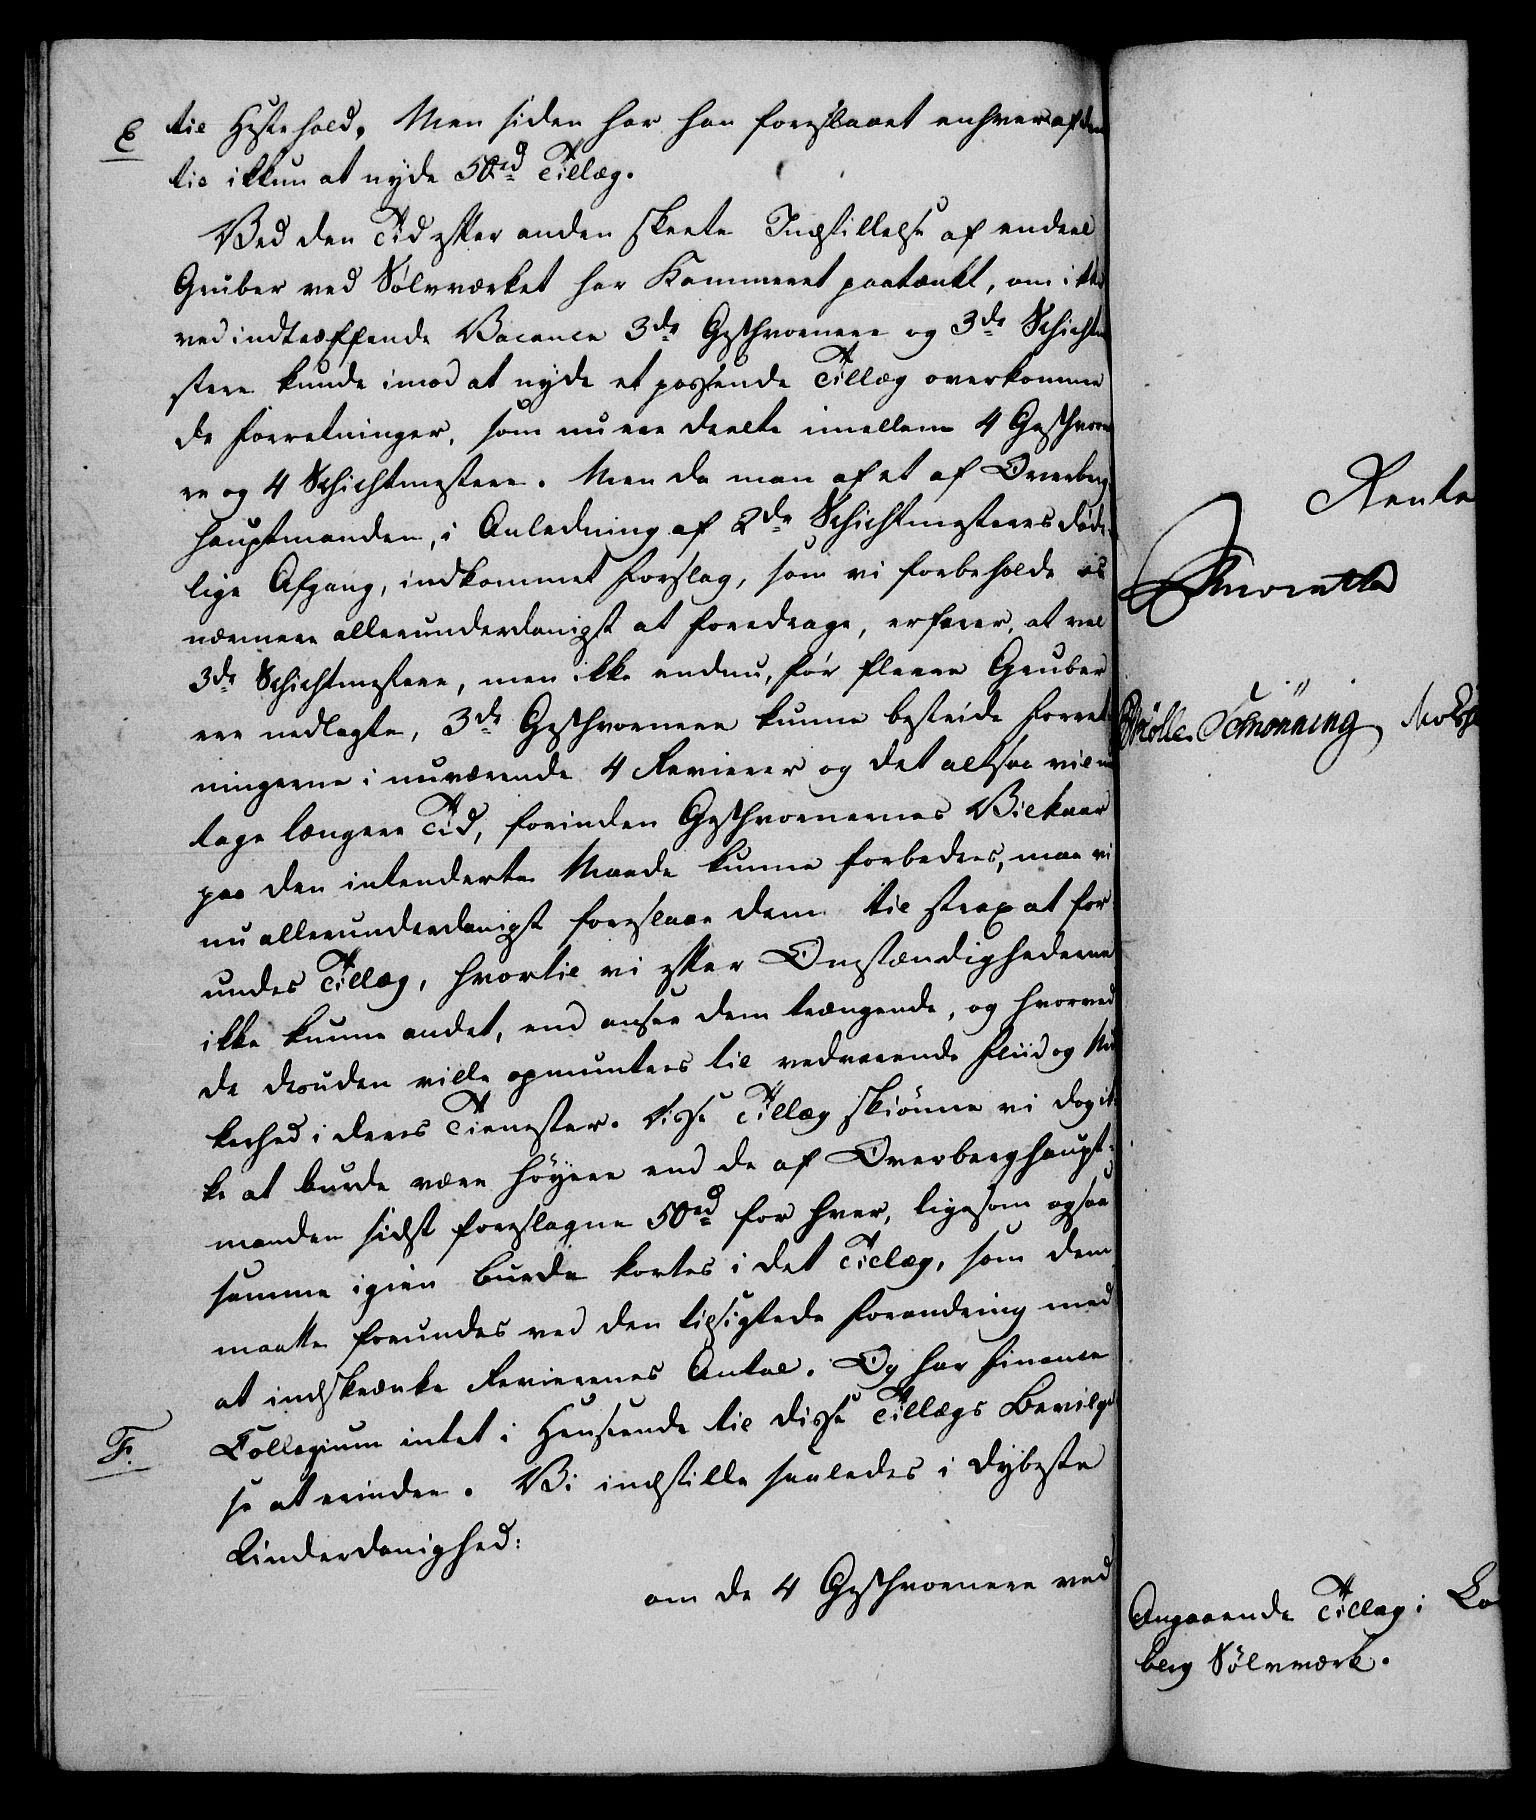 E
til Hestehold. Men siden har han foreslaaet enhver af dem
til ikkun at nyde 50 rd Tillæg.
Ved den Tid efter anden skeete Indstillelse af endeel
Gruber ved Sølvværket har Kammeret paatænkt, om ikke
ved indtræffende Vacance 3de Geschwornere og 3de Schichtme
stere kunde imod at nyde et passende Tillæg overkomme
de Forretninger, som nu ere deelte imellem 4 Geschworne
re og 4 Schichtmestere. Men da man af et af Overberg
hauptmanden, i Anledning af 2de Schichtmesteres døde
lige Afgang, indkommet Forslag, som vi forbeholde os
nærmere allerunderdanigst at foredrage, erfarer, at vel
3de Schichtmestere, men ikke endnu, før fleere Gruber
ere nedlagte, 3de Geschwornere kunne bestride Forret
ningerne i nuværende 4 Revierer og det altsaa vil med
tage længere Tid, forinden Geschwornernes Vilkaar
paa den intenderte Maade kunne forbedres, maa vi
nu allerunderdanigst foreslaae dem til strax at for
undes Tillæg, hvortil vi efter Omstændighederne
ikke kunne andet, end ansee dem trængende, og hvorved
de desuden ville opmuntres til vedvarende Fliid og Nid
kierhed i deres Tienester. Disse Tillæg skiønne vi dog ik
ke at burde være høyere end de af Overberghaupt-
manden sidst foreslagne 50 rd for hver, ligesom ogsaa
samme igien burde kortes i det Tillæg, som dem
maatte forundes ved den tilsigtede Forandring med
at indskrænke Revierernes Antal. Og har Finance
F.
Collegium intet i Henseende til disse Tillægs Bevilgel
se at erindre. Vi indstille saaledes i dybeste
Underdanighed:
om de 4 Geschwornere ved
Rente
Mølle. Schønning
Angaaende Tillæg i
berg Sølvværk.